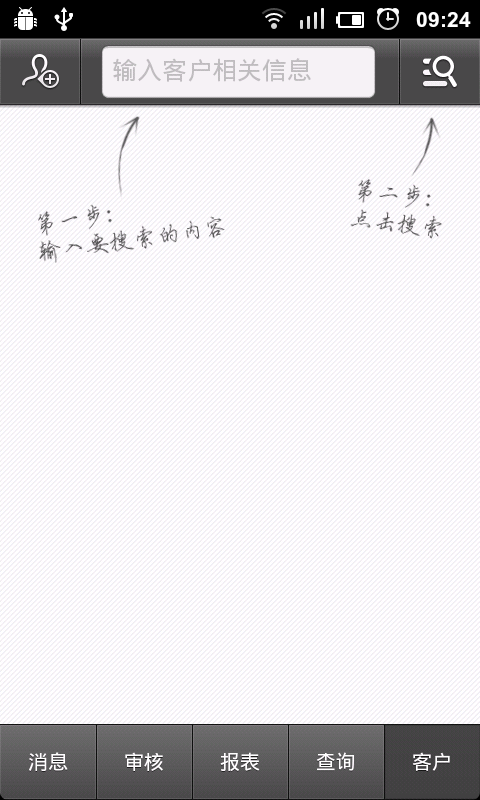 09:24
输入客户相关信息
第一步：
输入要搜索的内容
第二步：
点击搜索
消息 审核 报表 查询 客户